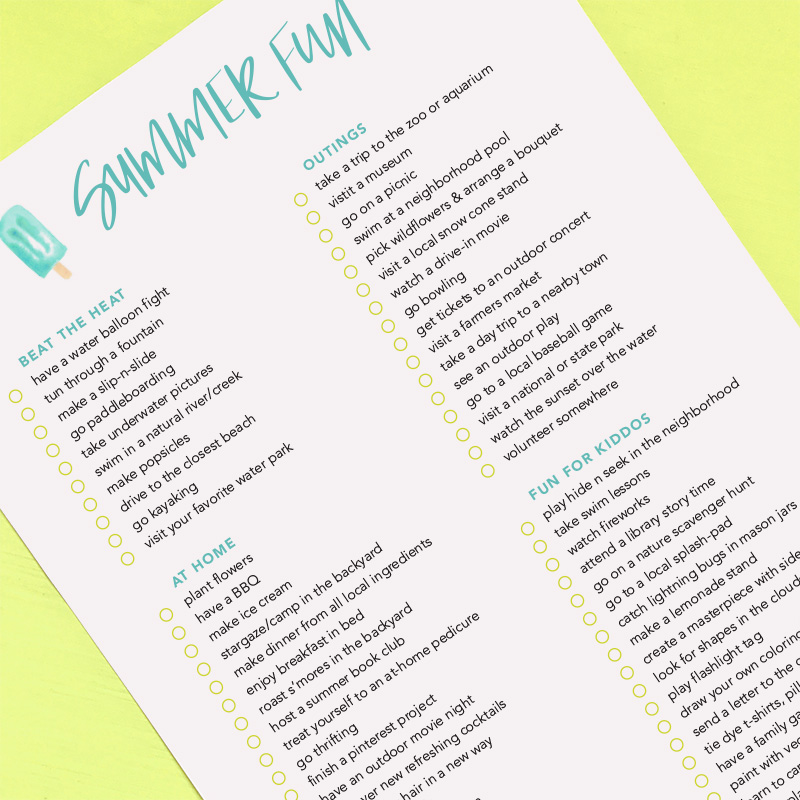 SUMMER FUN
BEAT THE HEAT
have a water balloon fight
tun through a fountain
make a slip-n-slide
go paddleboarding
take underwater pictures
swim in a natural river/creek
make popsicles
drive to the closest beach
go kayaking
visit your favorite water park
AT HOME
plant flowers
have a BBQ
make ice cream
stargaze/camp in the backyard
make dinner from all local ingredients
enjoy breakfast in bed
roast s'mores in the backyard
host a summer book club
treat yourself to an at-home pedicure
go thrifting
finish a pinterest project
have an outdoor movie night
new refreshing cocktails
hair in a new way
OUTINGS
take a trip to the zoo or aquarium
vistit a museum
go on a picnic
swim at a neighborhood pool
pick wildflowers & arrange a bouquet
visit a local snow cone stand
watch a drive-in movie
go bowling
get tickets to an outdoor concert
visit a farmers market
take a day trip to a nearby town
see an outdoor play
go to a local baseball game
visit a national or state park
watch the sunset over the water
volunteer somewhere
FUN FOR KIDDOS
play hide n seek in the neighborhood
take swim lessons
watch fireworks
attend a library story time
go on a nature scavenger hunt
go to a local splash-pad
catch lightning bugs in mason jars
make a lemonade stand
create a masterpiece with
look for shapes in the
play flashlight tag
draw your own
send a letter to the
tie dye t-shirts,
have a family
paint with